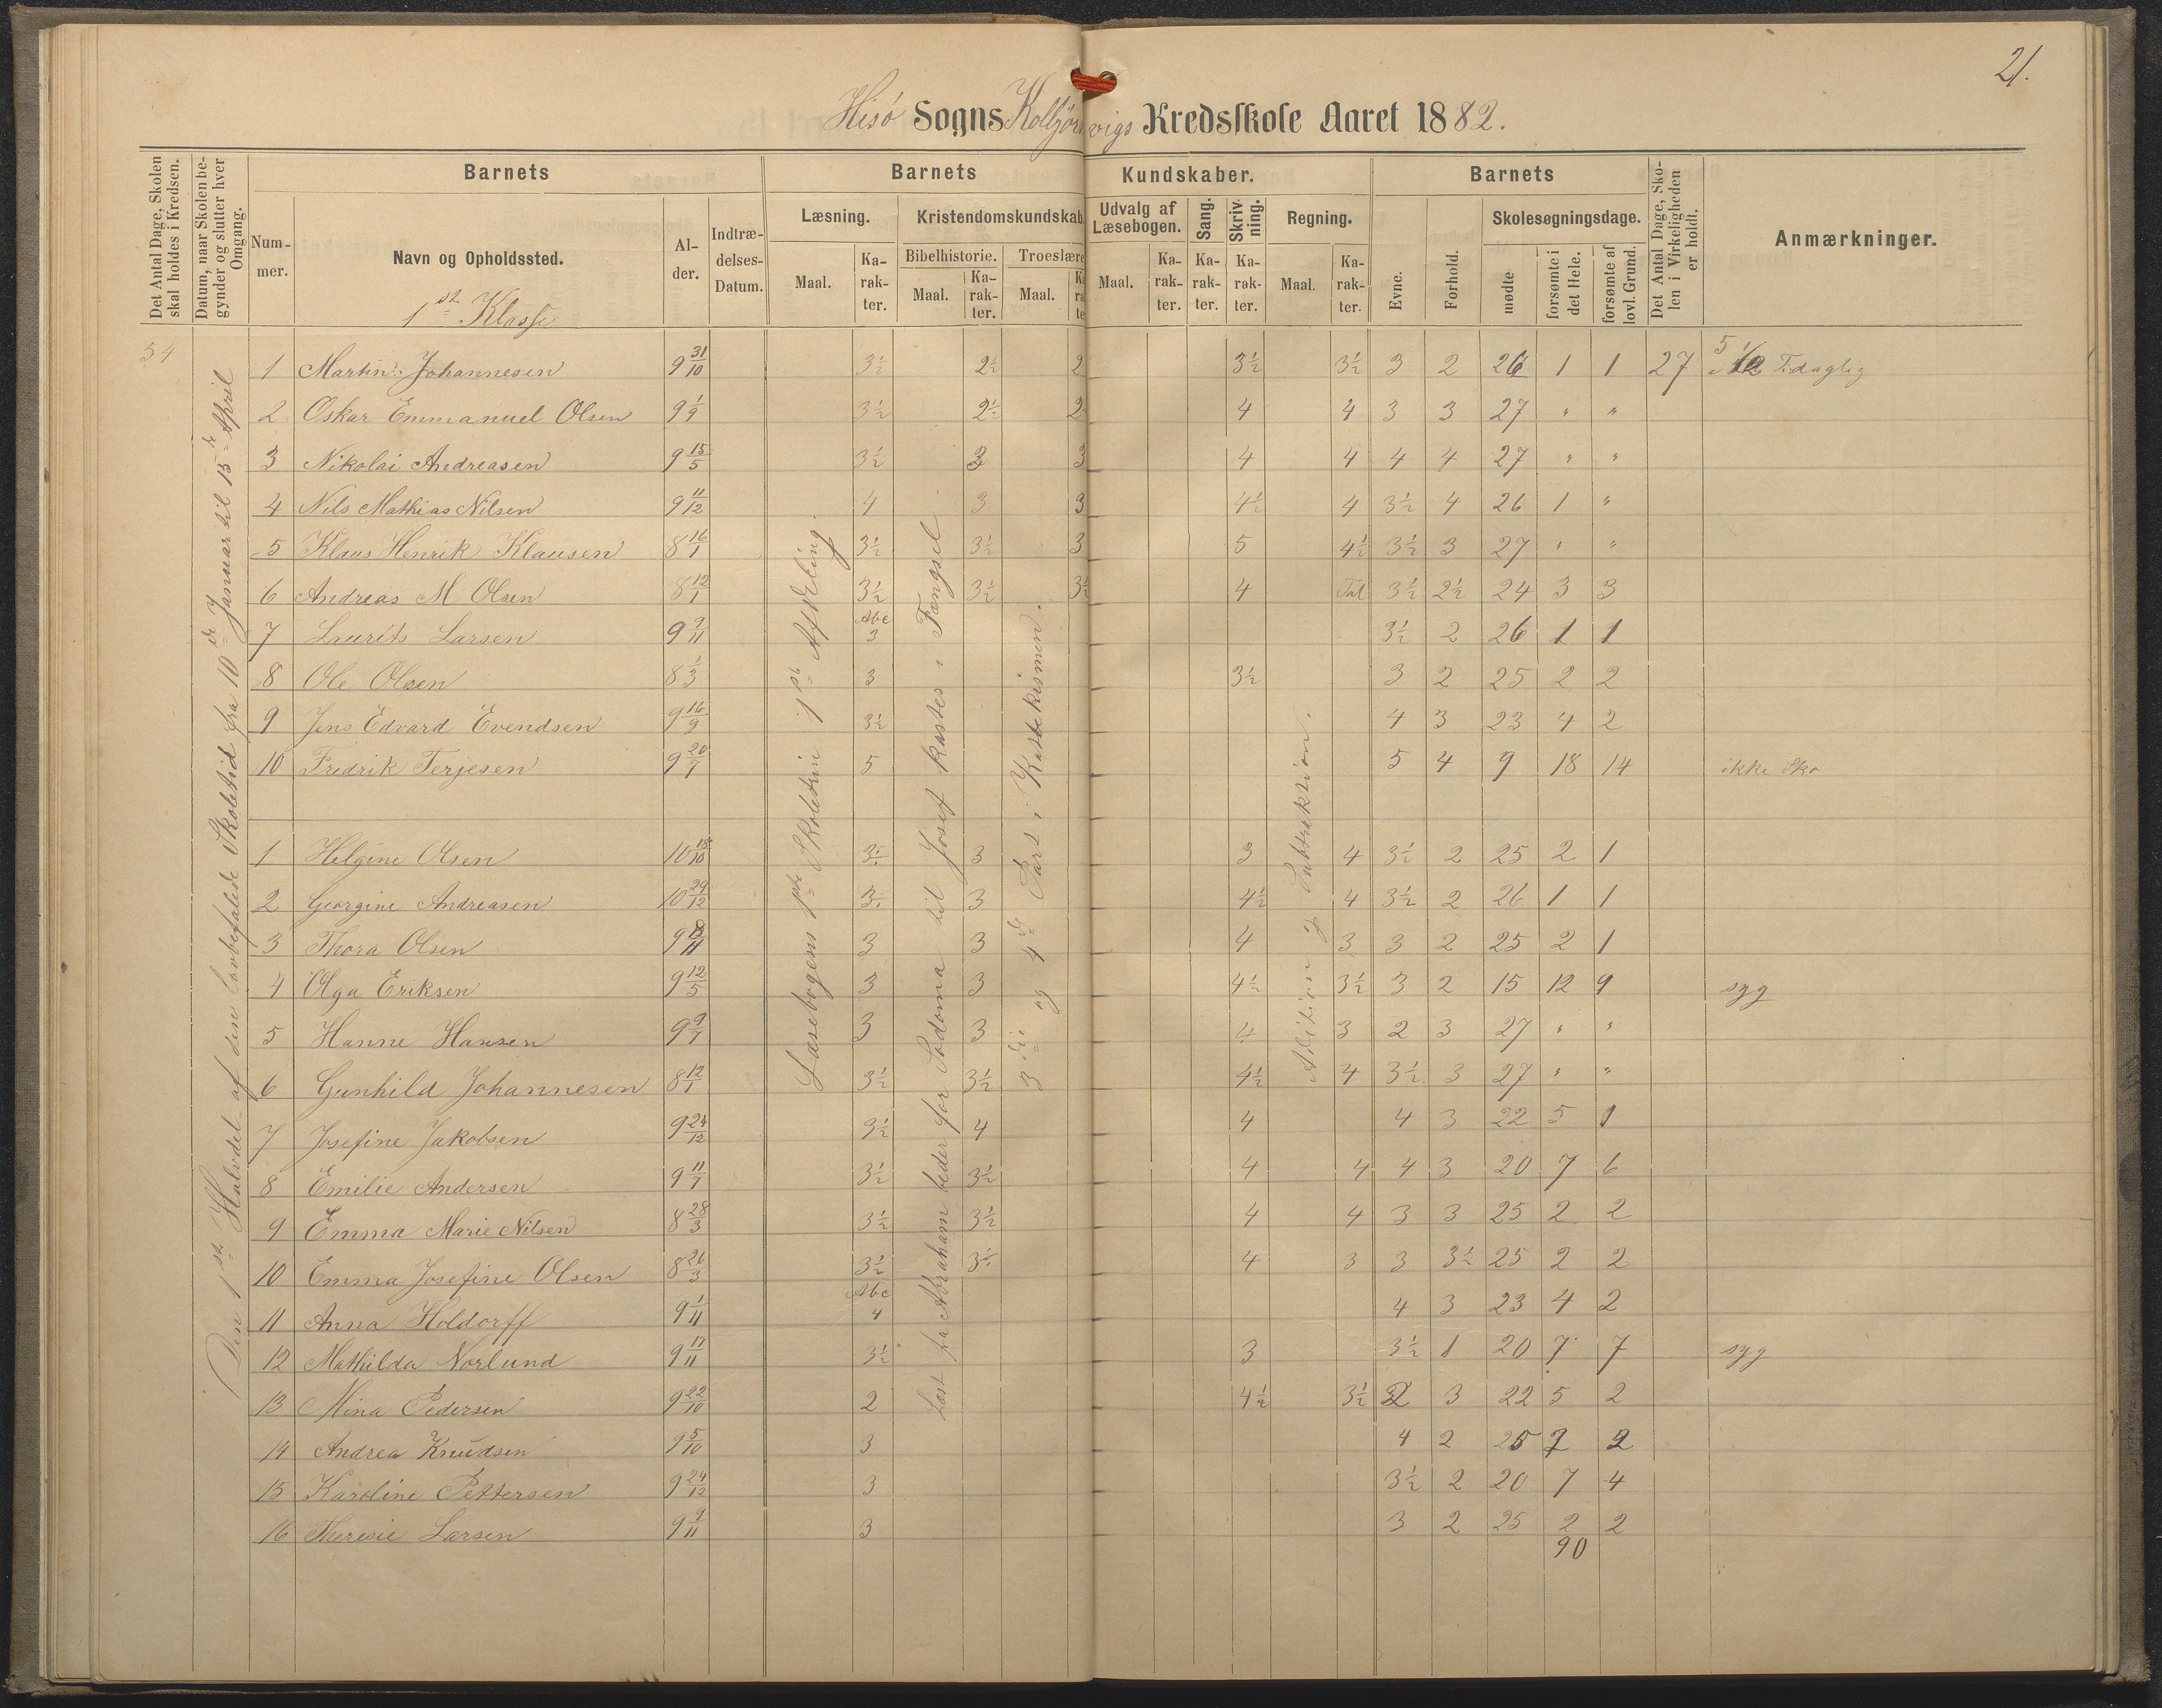 21.
Hisö Sogns Kolbjörnvigs Kredsskole Aaret 1882.
Det Antal Dage, Skolen skal holdes i Kredsen.
Datum, naar Skolen begynder og slutter hver Omgang.
Barnets
Barnets
Kundskaber.
Barnets
Det Antal Dage, Skolen i Virkeligheden er holdt.
Anmærkninger.
Nummer.
Navn og Opholdssted.
Alder.
Indtrædelses-Datum.
Læsning.
Kristendomskundskab
Udvalg af Læsebogen.
Sang.
Skrivning.
Regning.
Evne.
Forhold.
Skolesøgningsdage.
Bibelhistorie.
Troeslære
Maal.
Karakter.
Maal.
Karakter.
Maal.
Maal.
Karakter.
Karakter.
Karakter.
Maal.
Karakter.
mødte
forsømte i det Hele.
forsømte af lovl. Grund.
1st Klasse
54
Den 1st Halvdel af den lovbefalede Skoletid fra 10de Januar til 15de April
Læsebogens 1ste Skoletrin 1st Afdeling.
Læst fra Abraham beder for Sodoma til Josef kastes i Fængsel
3die og 4de Part i Katekismen.
Adition og Subtraktion.
1 Martin Johannesen 9 31/10 3½ 2½ 2 3½ 3½ 3 2 26 1 1 27 5 1/2 T. daglig
2 Oskar Emmanuel Olsen 9 1/9 3½ 2½ 2 4 4 3 3 27 " "
3 Nikolai Andreasen 9 15/5 3½ 3 3 4 4 4 4 27 " "
4 Nils Mathias Nilsen 9 11/12 4 3 3 4½ 4 3½ 4 26 1 "
5 Klaus Henrik Klausen 8 16/1 3½ 3½ 3 5 4½ 3½ 3 27 " "
6 Andreas M Olsen 8 12/1 3½ 3½ 3½ 4 Tal 3½ 2½ 24 3 3
7 Laurits Larsen 9 9/11 Abc 3 3½ 2 26 1 1
8 Ole Olsen 8 1/3 3 3½ 3 2 25 2 2
9 Jens Edvard Evendsen 9 16/9 3½ 4 3 23 4 2
10 Fredrik Terjesen 9 20/7 5 5 4 9 18 14 ikke Sko
1 Helgine Olsen 10 18/10 3½ 3 3 4 3½ 2 25 2 1
2 Georgine Andreasen 10 29/12 3½ 3 4½ 4 3½ 2 26 1 1
3 Thora Olsen 9 18/11 3 3 4 3 3 2 25 2 1
4 Olga Eriksen 9 12/5 3 3 4½ 3½ 3 2 15 12 9 syg
5 Hanne Hansen 9 9/7 3 3 4 3 2 3 27 " "
6 Gunhild Johannesen 8 12/1 3½ 3½ 4½ 4 3½ 3 27 " "
7 Josefine Jakobsen 9 24/12 3½ 4 4 4 3 22 5 1
8 Emilie Andersen 9 11/7 3½ 3½ 4 4 4 3 20 7 6
9 Emma Marie Nilsen 8 28/3 3½ 3½ 4 4 3 3 25 2 2
10 Emma Josefine Olsen 8 26/3 3½ 3½ 4 3 3 3½ 25 2 2
11 Anna Holdorff 9 1/11 Abc 4 4 3 23 4 2
12 Mathilda Norlund 9 17/11 3½ 3 3½ 1 20 7 7 syg
13 Mina Pedersen 9 22/10 2 4½ 3½ 2 3 22 5 2
14 Andrea Knudsen 9 5/10 3 4 2 25 2 2
15 Karoline Pettersen 9 24/12 3 3½ 2 20 7 4
16 Theresie Larsen 9 9/11 3 3 2 25 2 2
90